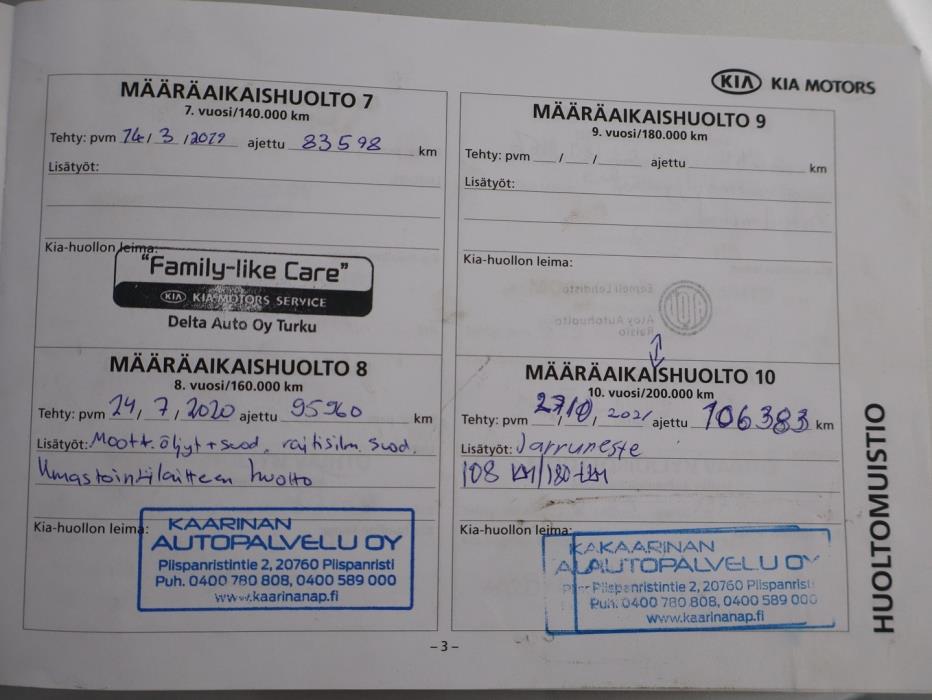 KIA KIA MOTORS
MÄÄRÄAIKAISHUOLTO 7
7. vuosi/140.000 km
Tehty: pvm 14/3/2019 ajettu 83598 km
Lisätyöt:
Kia-huollon leima:
"Family-like Care"
KIA KIA MOTORS SERVICE
Delta Auto Oy Turku
MÄÄRÄAIKAISHUOLTO 8
8. vuosi/160.000 km
Tehty: pvm 24/7/2020 ajettu 95960 km
Lisätyöt: Moott. öljyt + suod, raitisilm. suod.
Ilmastointilaitteen huolto
Kia-huollon leima:
KAARINAN
AUTOPALVELU OY
Piispanristintie 2, 20760 Piispanristi
Puh. 0400 780 808, 0400 589 000
www.kaarinanap.fi
MÄÄRÄAIKAISHUOLTO 9
9. vuosi/180.000 km
Tehty: pvm / / ajettu km
Lisätyöt:
Kia-huollon leima:
MÄÄRÄAIKAISHUOLTO 10
10. vuosi/200.000 km
Tehty: pvm 27/10/2021 ajettu 106383 km
Lisätyöt: Jarruneste
Kia-huollon leima:
KAARINAN
AUTOPALVELU OY
Piispanristintie 2, 20760 Piispanristi
Puh. 0400 780 808, 0400 589 000
www.kaarinanap.fi
HUOLTOMUISTIO
– 3 –